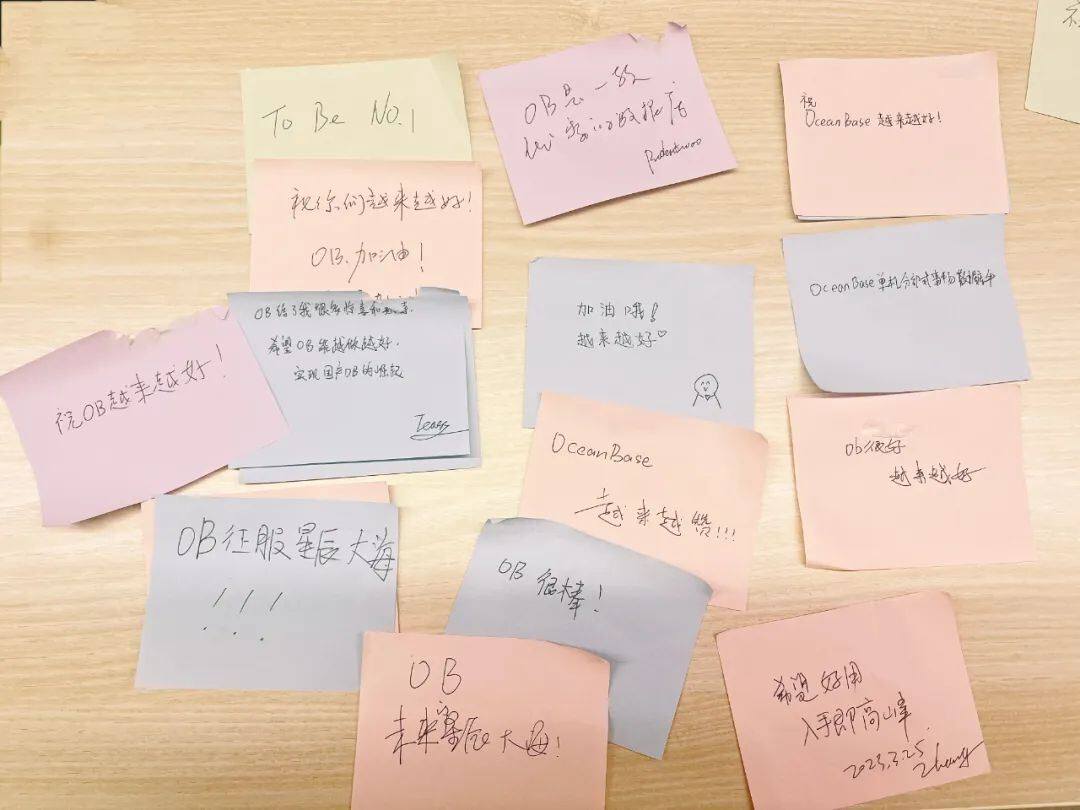 To Be NO.1
祝你们越来越好!
OB.加油!
OB是一款
优秀的数据库
祝
OceanBase 越来越好!
OB给了我很多惊喜和
希望OB能越做越好.
实现国产DB的崛起
加油哦!
越来越好♡
OceanBase单机分布式事务
祝OB越来越好!
OceanBase
越来越赞!!!
ob很好
越来越好
OB征服星辰大海
!!!
OB 很棒!
OB
未来星辰大海!
希望好用
入手即高峰
2023.3.25
Zhang